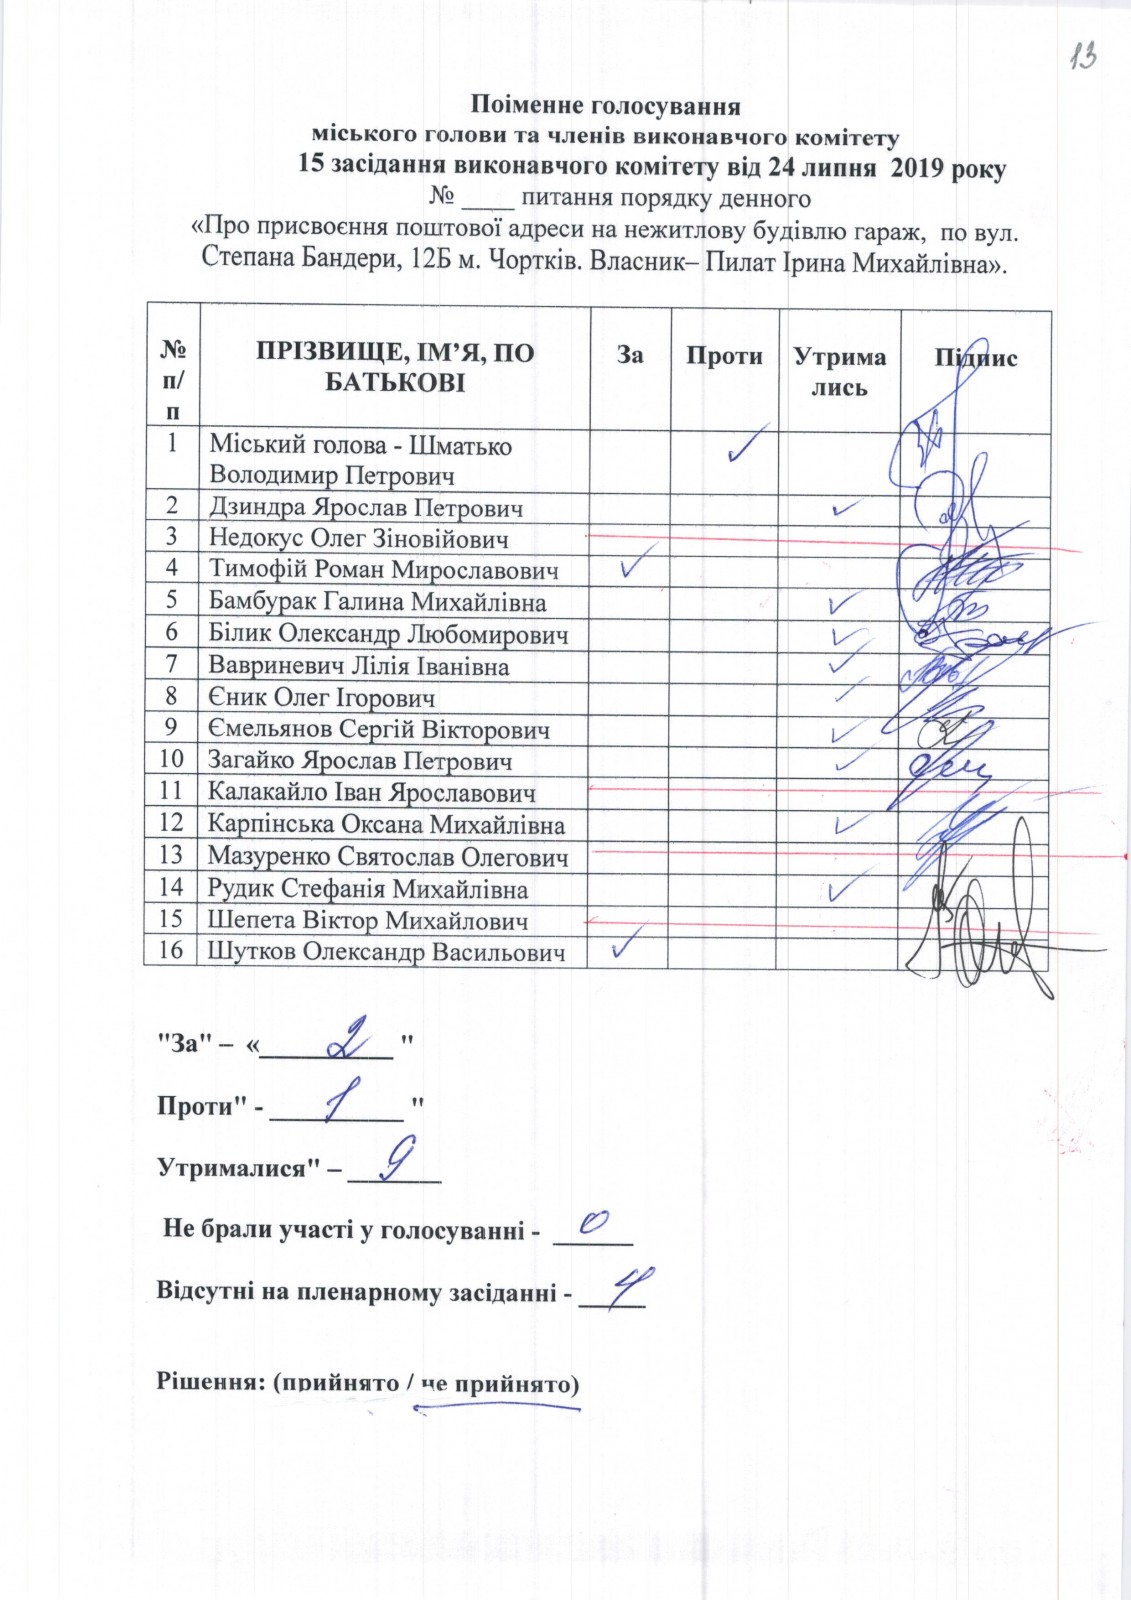 13
Поіменне голосування
міського голови та членів виконавчого комітету
15 засідання виконавчого комітету від 24 липня 2019 року
№ ____ питання порядку денного
«Про присвоєння поштової адреси на нежитлову будівлю гараж, по вул.
Степана Бандери, 12Б м. Чортків. Власник– Пилат Ірина Михайлівна».
№ п/п ПРІЗВИЩЕ, ІМ’Я, ПО БАТЬКОВІ За Проти Утрима лись Підпис
1 Міський голова - Шматько
Володимир Петрович ✓
2 Дзиндра Ярослав Петрович ✓
3 Недокус Олег Зіновійович
4 Тимофій Роман Мирославович ✓
5 Бамбурак Галина Михайлівна ✓
6 Білик Олександр Любомирович ✓
7 Вавриневич Лілія Іванівна ✓
8 Єник Олег Ігорович ✓
9 Ємельянов Сергій Вікторович ✓
10 Загайко Ярослав Петрович ✓
11 Калакайло Іван Ярославович
12 Карпінська Оксана Михайлівна ✓
13 Мазуренко Святослав Олегович
14 Рудик Стефанія Михайлівна ✓
15 Шепета Віктор Михайлович
16 Шутков Олександр Васильович ✓
"За" – «____2____"
Проти" - ____1____ "
Утрималися" – __9__
Не брали участі у голосуванні - __0__
Відсутні на пленарному засіданні - __4__
Рішення: (прийнято / не прийнято)